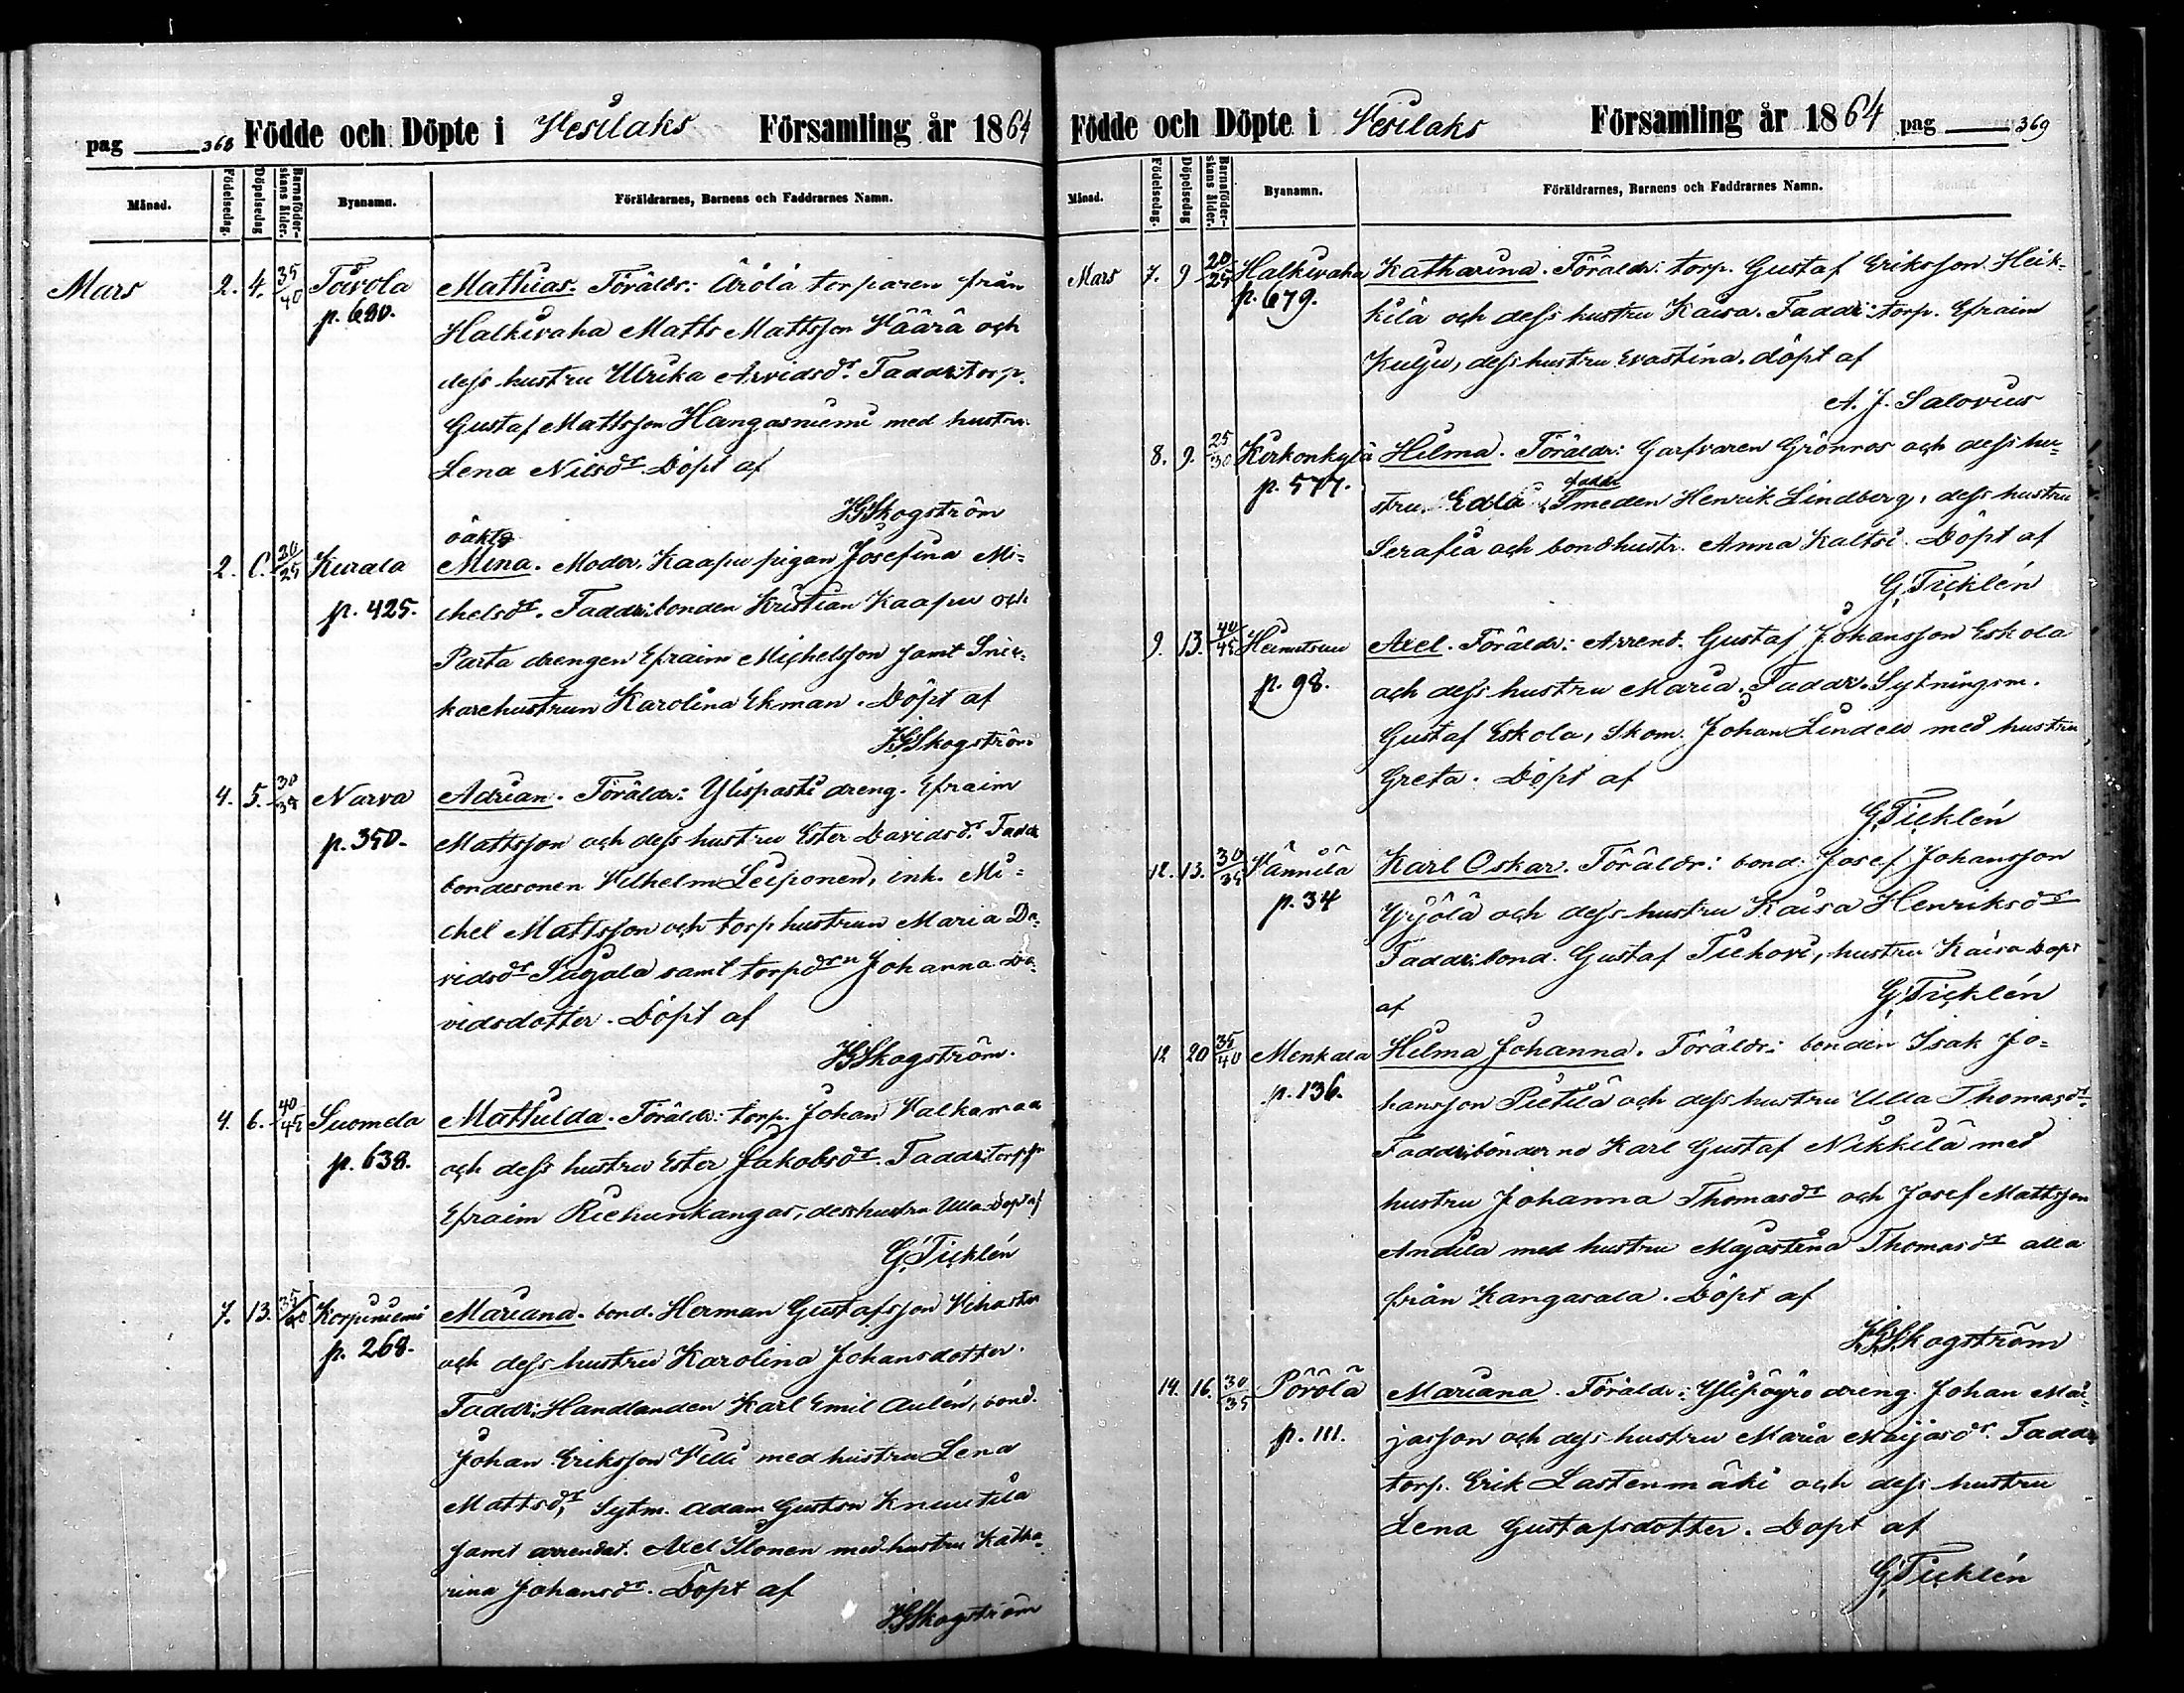 pag 368 Födde och Döpte i Vesilaks Församling år 1864
Månad. Födelsedag. Döpelsedag Barnaföderskans ålder. Byanamn. Föräldrarnes, Barnens och Faddrarnes Namn.
Mars 2. 4. 35/40 Toivola Mathias. Föräldr: Ärölä torparen från
p. 680. Halkivaha Matts Mattsson Väärä och
dess hustru Ulrika Arvidsdr. Faddr: torp.
Gustaf Mattsson Hangasniemi med hustru
Lena Nilsdr. Döpt af
HGSkogström
oäkta
2. 6. 20/25 Kurala Mina. Moder, Kaapu pigan Josefina Mi-
p. 425. chelsdr. Faddr: bonden Kristian Kaapu och
Parta drengen Efraim Michelsson samt Snic-
karehustrun Karolina Ekman. Döpt af
HGSkogström
4. 5. 30/35 Narva Adrian. Föräldr: Ylispasti dreng. Efraim
p. 350. Mattsson och dess hustru Ester Davidsdr. Faddr
bondesonen Vilhelm Leiponen, inh. Mi-
chel Mattsson och torphustrun Maria Da-
vidsdr Pajala samt torpdrn Johanna Da-
vidsdotter. Döpt af
HGSkogström.
4. 6. 40/45 Suomela Mathilda. Föräldr: torp. Johan Valkamaa
p. 638. och dess hustru Ester Jakobsdr. Faddr: torp
Efraim Riehunkangas, dess hustru Ulla Döpt af
G. Ticklén
7. 13. 35/40 Korpiniemi Mariana. bond. Herman Gustafsson Vihastu
p. 268. och dess hustru Karolina Johansdotter.
Faddr: Handlanden Karl Emil Aulén, bond.
Johan Eriksson Villi med hustru Lena
Mattsdr, Sytm. Adam Gustsn Knuutila
samt arrendat. Axel Ilonen med hustru Katha-
rina Johansdr. Döpt af
HGSkogström
Födde och Döpte i Vesilaks Församling år 1864 pag 369
Månad. Födelsedag. Döpelsedag Barnaföderskans ålder. Byanamn. Föräldrarnes, Barnens och Faddrarnes Namn.
Mars 7. 9 20/25 Halkivaha Katharina. Föräldr: torp. Gustaf Eriksson Heik-
p. 679. kilä och dess hustru Kaisa. Faddr: torp. Efraim
Kulju, dess hustru Evastina. döpt af
A. J. Salovius
8. 9. 25/30 Kirkonkylä Hilma. Föräldr: Garfvaren Grönros och dess hu-
faddr
p. 577. stru Edla, Smeden Henrik Lindberg, dess hustru
Serafia och bondhustr. Anna Kaltsi. Döpt af
G. Ticklén
9. 13. 40/45 Heinitsuu Axel. Föräldr: Arrend. Gustaf Johansson Eskola
p. 98. och dess hustru Maria. Faddr. Sytningsm.
Gustaf Eskola, Skom. Johan Lindell med hustru
Greta. Döpt af
G. Ticklén
12. 13. 30/35 Vännilä Karl Oskar. Föräldr: bond. Josef Johansson
p. 34 Yrjölä och dess hustru Kaisa Henriksdr
Faddr: bond. Gustaf Tiehovi, hustru Kaisa Döpt
af G. Ticklén
12 20 35/40 Menkala Hilma Johanna. Föräldr: bonden Isak Jo-
p. 136. hansson Pietilä och dess hustru Ulla Thomasdr.
Faddr: bönderne Karl Gustaf Nikkilä med
hustru Johanna Thomasdr och Josef Mattsson
Andila med hustru Majastina Thomasdr alla
från Kangasala. Döpt af
HGSkogström
14. 16. 30/35 Pörölä Mariana. Föräldr: Ylipöyrö dreng Johan Mai-
p. 111. jasson och dess hustru Maria Maijasdr. Faddr
torp. Erik Lastenmäki och dess hustru
Lena Gustafsdotter. Döpt af
G. Ticklén